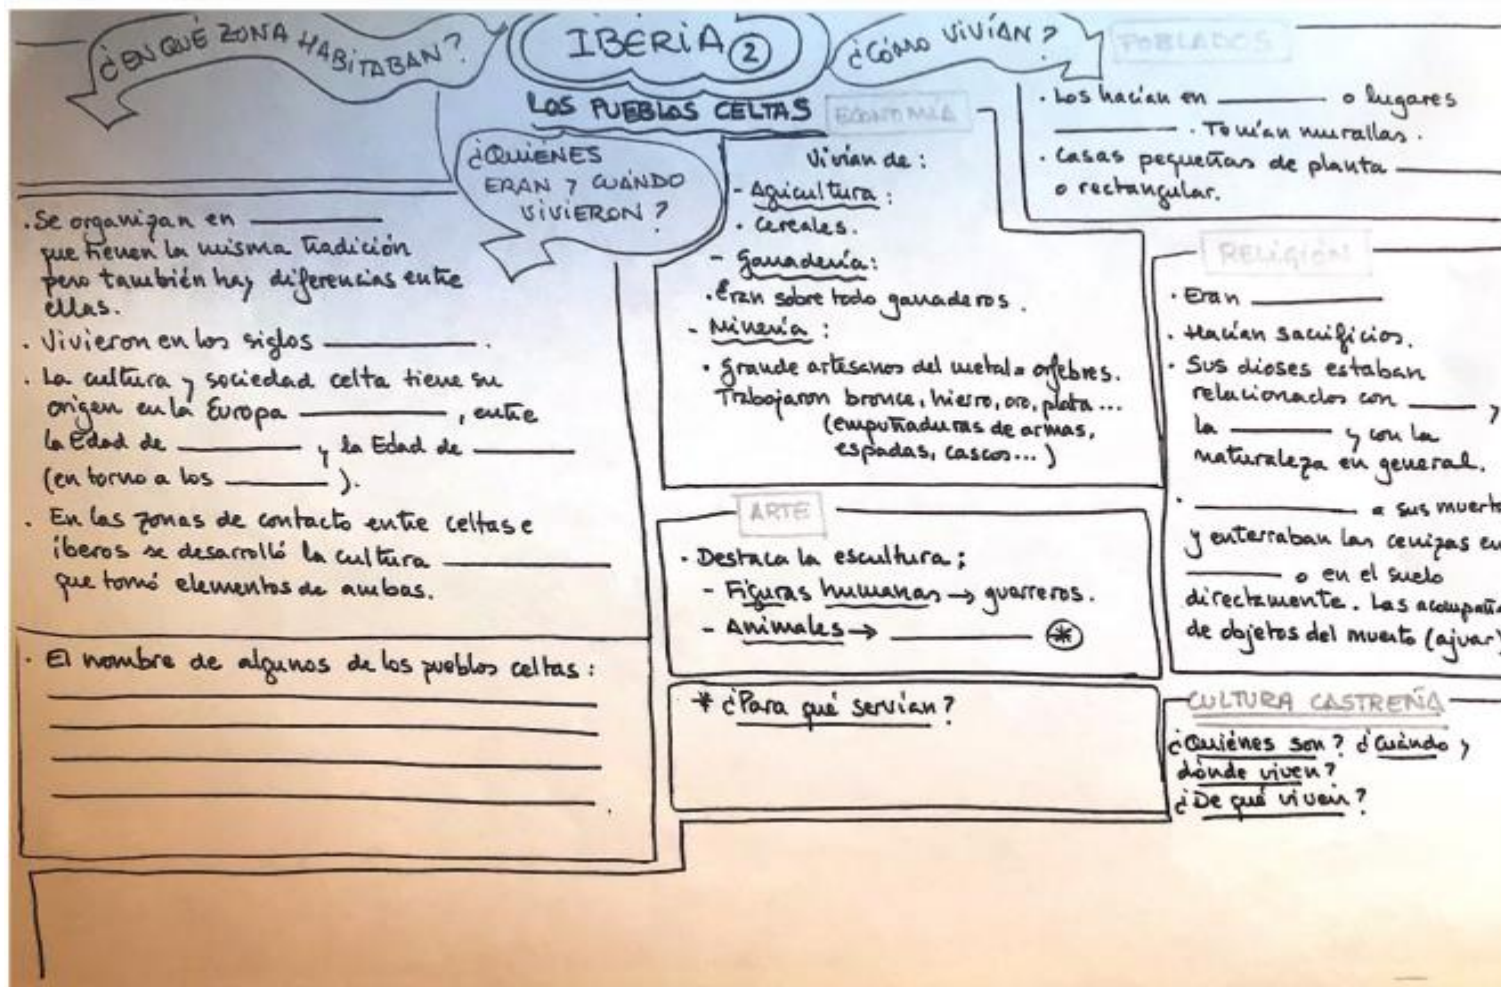 ¿EN QUÉ ZONA HABITABAN?
IBERIA ②
LOS PUEBLOS CELTAS
¿CÓMO VIVÍAN?
POBLADOS
· Los hacían en ______ o lugares
______. Tenían murallas.
· Casas pequeñas de planta ______
o rectangular.
¿QUIÉNES
ERAN Y CUÁNDO
VIVIERON?
· Se organizan en ______
que tienen la misma tradición
pero también hay diferencias entre
ellas.
· Vivieron en los siglos ______.
· La cultura y sociedad celta tiene su
origen en la Europa ______, entre
la Edad de ______ y la Edad de ______
(en torno a los ______).
· En las zonas de contacto entre celtas e
íberos se desarrolló la cultura ______
que tomó elementos de ambas.
· El nombre de algunos de los pueblos celtas:
ECONOMÍA
Vivían de:
- Agricultura:
· Cereales.
- Ganadería:
· Eran sobre todo ganaderos.
- Minería:
· Grande artesanos del metal = orfebres.
Trabajaron bronce, hierro, oro, plata...
(empuñaduras de armas,
espadas, cascos...)
ARTE
· Destaca la escultura:
- Figuras humanas → guerreros.
- Animales → ______ *
* ¿Para qué servían?
RELIGIÓN
· Eran ______
· Hacían sacrificios.
· Sus dioses estaban
relacionados con ______ y
la ______ y con la
naturaleza en general.
· ______ a sus muertos
y enterraban las cenizas en
______ o en el suelo
directamente. Las acompaña
de objetos del muerto (ajuar)
CULTURA CASTREÑA
¿Quiénes son? ¿Cuándo y
dónde viven?
¿De qué viven?